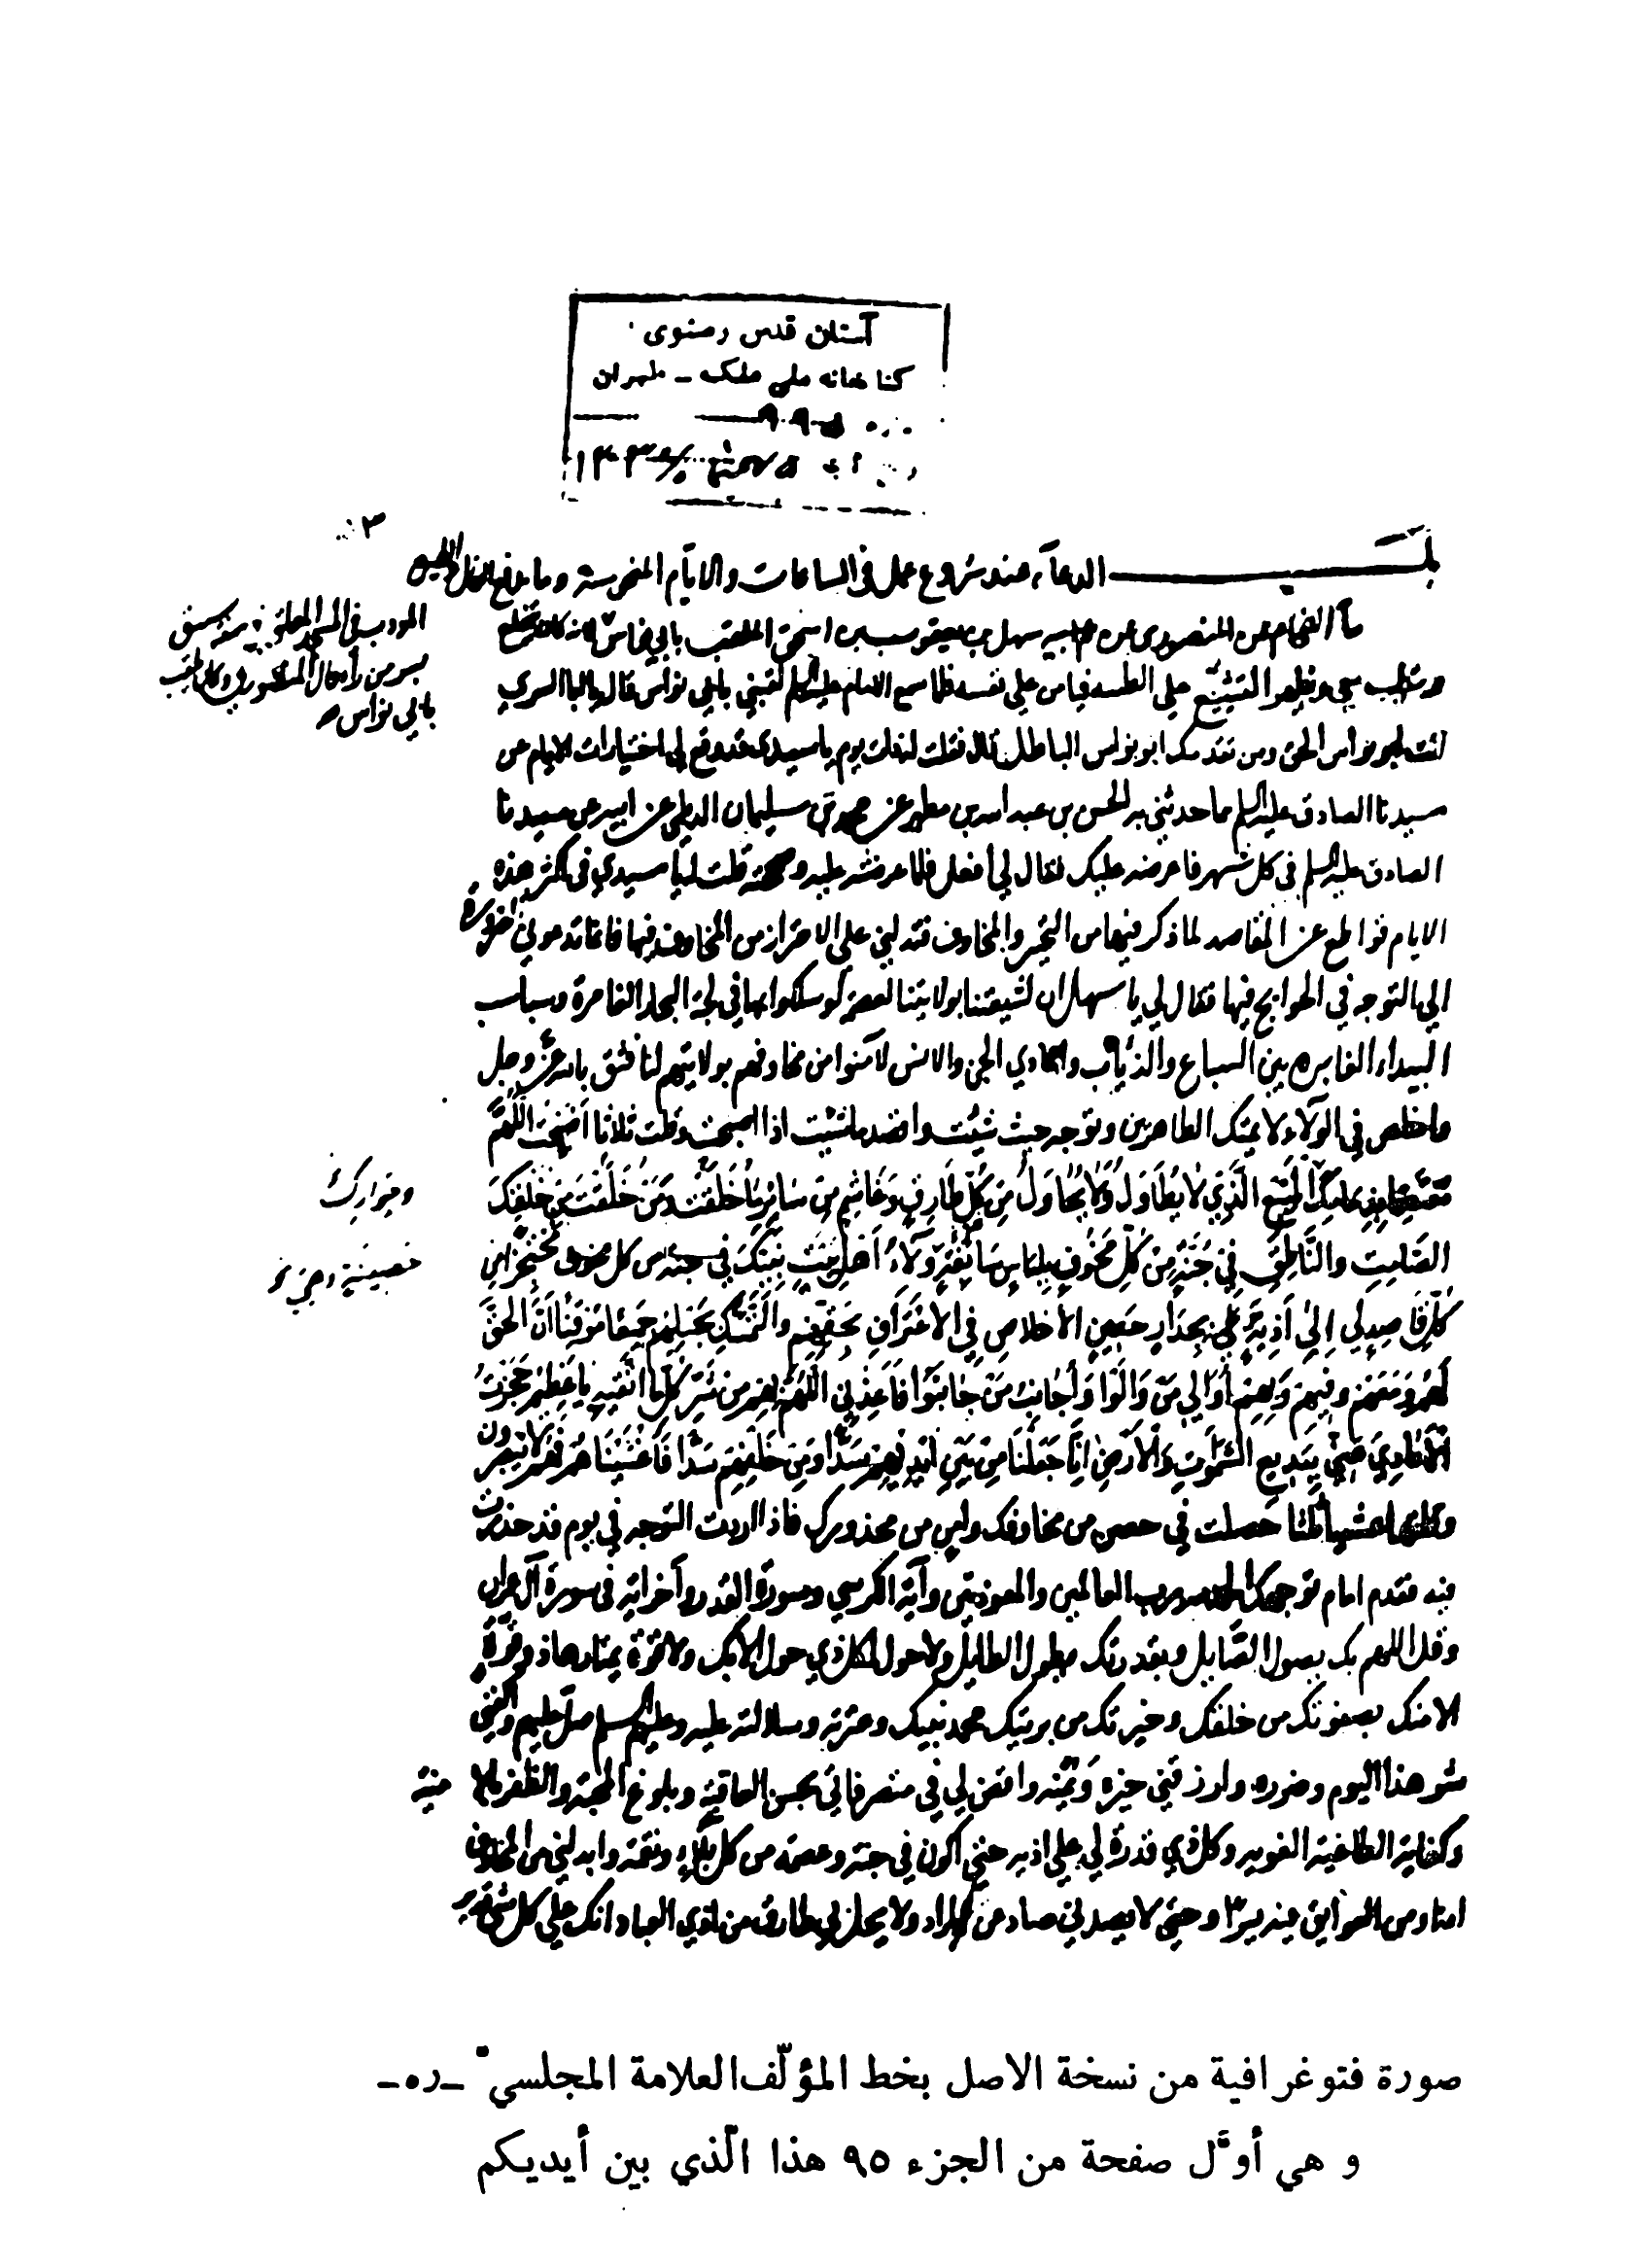 آستان قدس رضوی
کتابخانه ملی ملک - طهران
٣
بـــاب الدعآء عند شروع عمل في الساعات والايام المنحوسة وما يدفع الفال
ما الفحام عن المنصوري عن عم ابيه سهل بن يعقوب بن اسحق الملقب بابي نواس كان يتخلع
المودب في المسجد المعلق في صفة سبق
بسر من رأى قال المنصوري وكان يلقب
بابي نواس
ويتطيب مع ويظهر التشيع على الطيبة فيامن على نفسه فلما سمع الامام عليه السلم لقبني بابي نواس قال يا ابا السري
انت ابو نواس الحق ومن تقدمك ابو نواس الباطل قال فقلت له ذات يوم يا سيدي قد وقع لي اختيارات الايام عن
سيدنا الصادق عليه السلم مما حدثني به الحسن بن عبد الله بن مطهر عن محمد بن سليمان الديلمي عن ابيه عن سيدنا
الصادق عليه السلم في كل شهر فاعرضه عليك فقال لي أفعل فلما عرضته عليه وصححته قلت له يا سيدي في اكثر هذه
الايام قواطع عن المقاصد لما ذكر فيها من التحير والمخاوف فتدلني على الاحتراز من المخاوف فيها فانما تدعوني الضرورة
الى التوجه في الحوايج فيها فقال لي يا سهل ان لشيعتنا بولايتنا لعصمة لو سلكوا بها في لجة البحار الغامرة وسباسب
البيداء الغايرة بين السباع والذياب واعادي الجن والانس لامنوا من مخاوفهم بولايتهم لنا فثق بالله عز وجل
واخلص في الولاء لايمتك الطاهرين وتوجه حيث شيت واقصد ما شيت اذا اصبحت وقلت ثلاثا اصبحت اللهم
معتصما بذمامك المنيع الذي لا يطاول ولا يحاول من كل طارق وغاشم من ساير ما خلقت ومن خلقت من خلقك
وجوارك
الصامت والناطق في جنة من كل مخوف بلباس سابغة ولاء اهل بيت نبيك في جنة من كل مخوف محتجزا من
حصينة
كل قاصد لي الى اذية بجدار حصين الاخلاص في الاعتراف بحقهم والتمسك بحبلهم جميعا موقنا ان الحق
لهم ومعهم وفيهم وبهم اوالي من والوا واجانب من جانبوا فاعذني اللهم بهم من شر كل ما اتقيه يا عظيم حجزت
الاعادي عني ببديع السموات والارض انا جعلنا من بين ايديهم سدا ومن خلفهم سدا فاغشيناهم فهم لا يبصرون
وقلتها عشيا ثلثا حصلت في حصن من مخاوفك وامن من محذورك فاذا اردت التوجه في يوم قد حذرت
فيه فقدم امام توجهك الحمد لله رب العالمين والمعوذتين وآية الكرسي وسورة القدر وآخر آية في سورة آل عمران
وقل اللهم بك يصول الصايل وبقدرتك يطول الطايل ولا حول لكل ذي حول الا بك ولا قوة يمتارها ذو قوة
الا منك بصفوتك من خلقك وخيرتك من بريتك محمد نبيك وعترته وسلالته عليه وعليهم السلم صل عليهم واكفني
شر هذا اليوم وضرره وارزقني خيره ويمنه واقض لي في متصرفاتي بحسن العاقبة وبلوغ المحبة والظفر بالامنية
وكفاية الطاغية الغوية وكل ذي قدرة لي على اذية حتى اكون في جنة وعصمة من كل بلاء ونقمة وابدلني من المخاوف
امنا ومن العوايق فيه يسرا وحتى لا يصدني صاد عن المراد ولا يحل بي طارق من اذى العباد انك على كل شئ قدير
صورة فتوغرافية من نسخة الاصل بخط المؤلّف العلامة المجلسي ـ ره ـ
و هي أوّل صفحة من الجزء ٩٥ هذا الّذي بين أيديكم